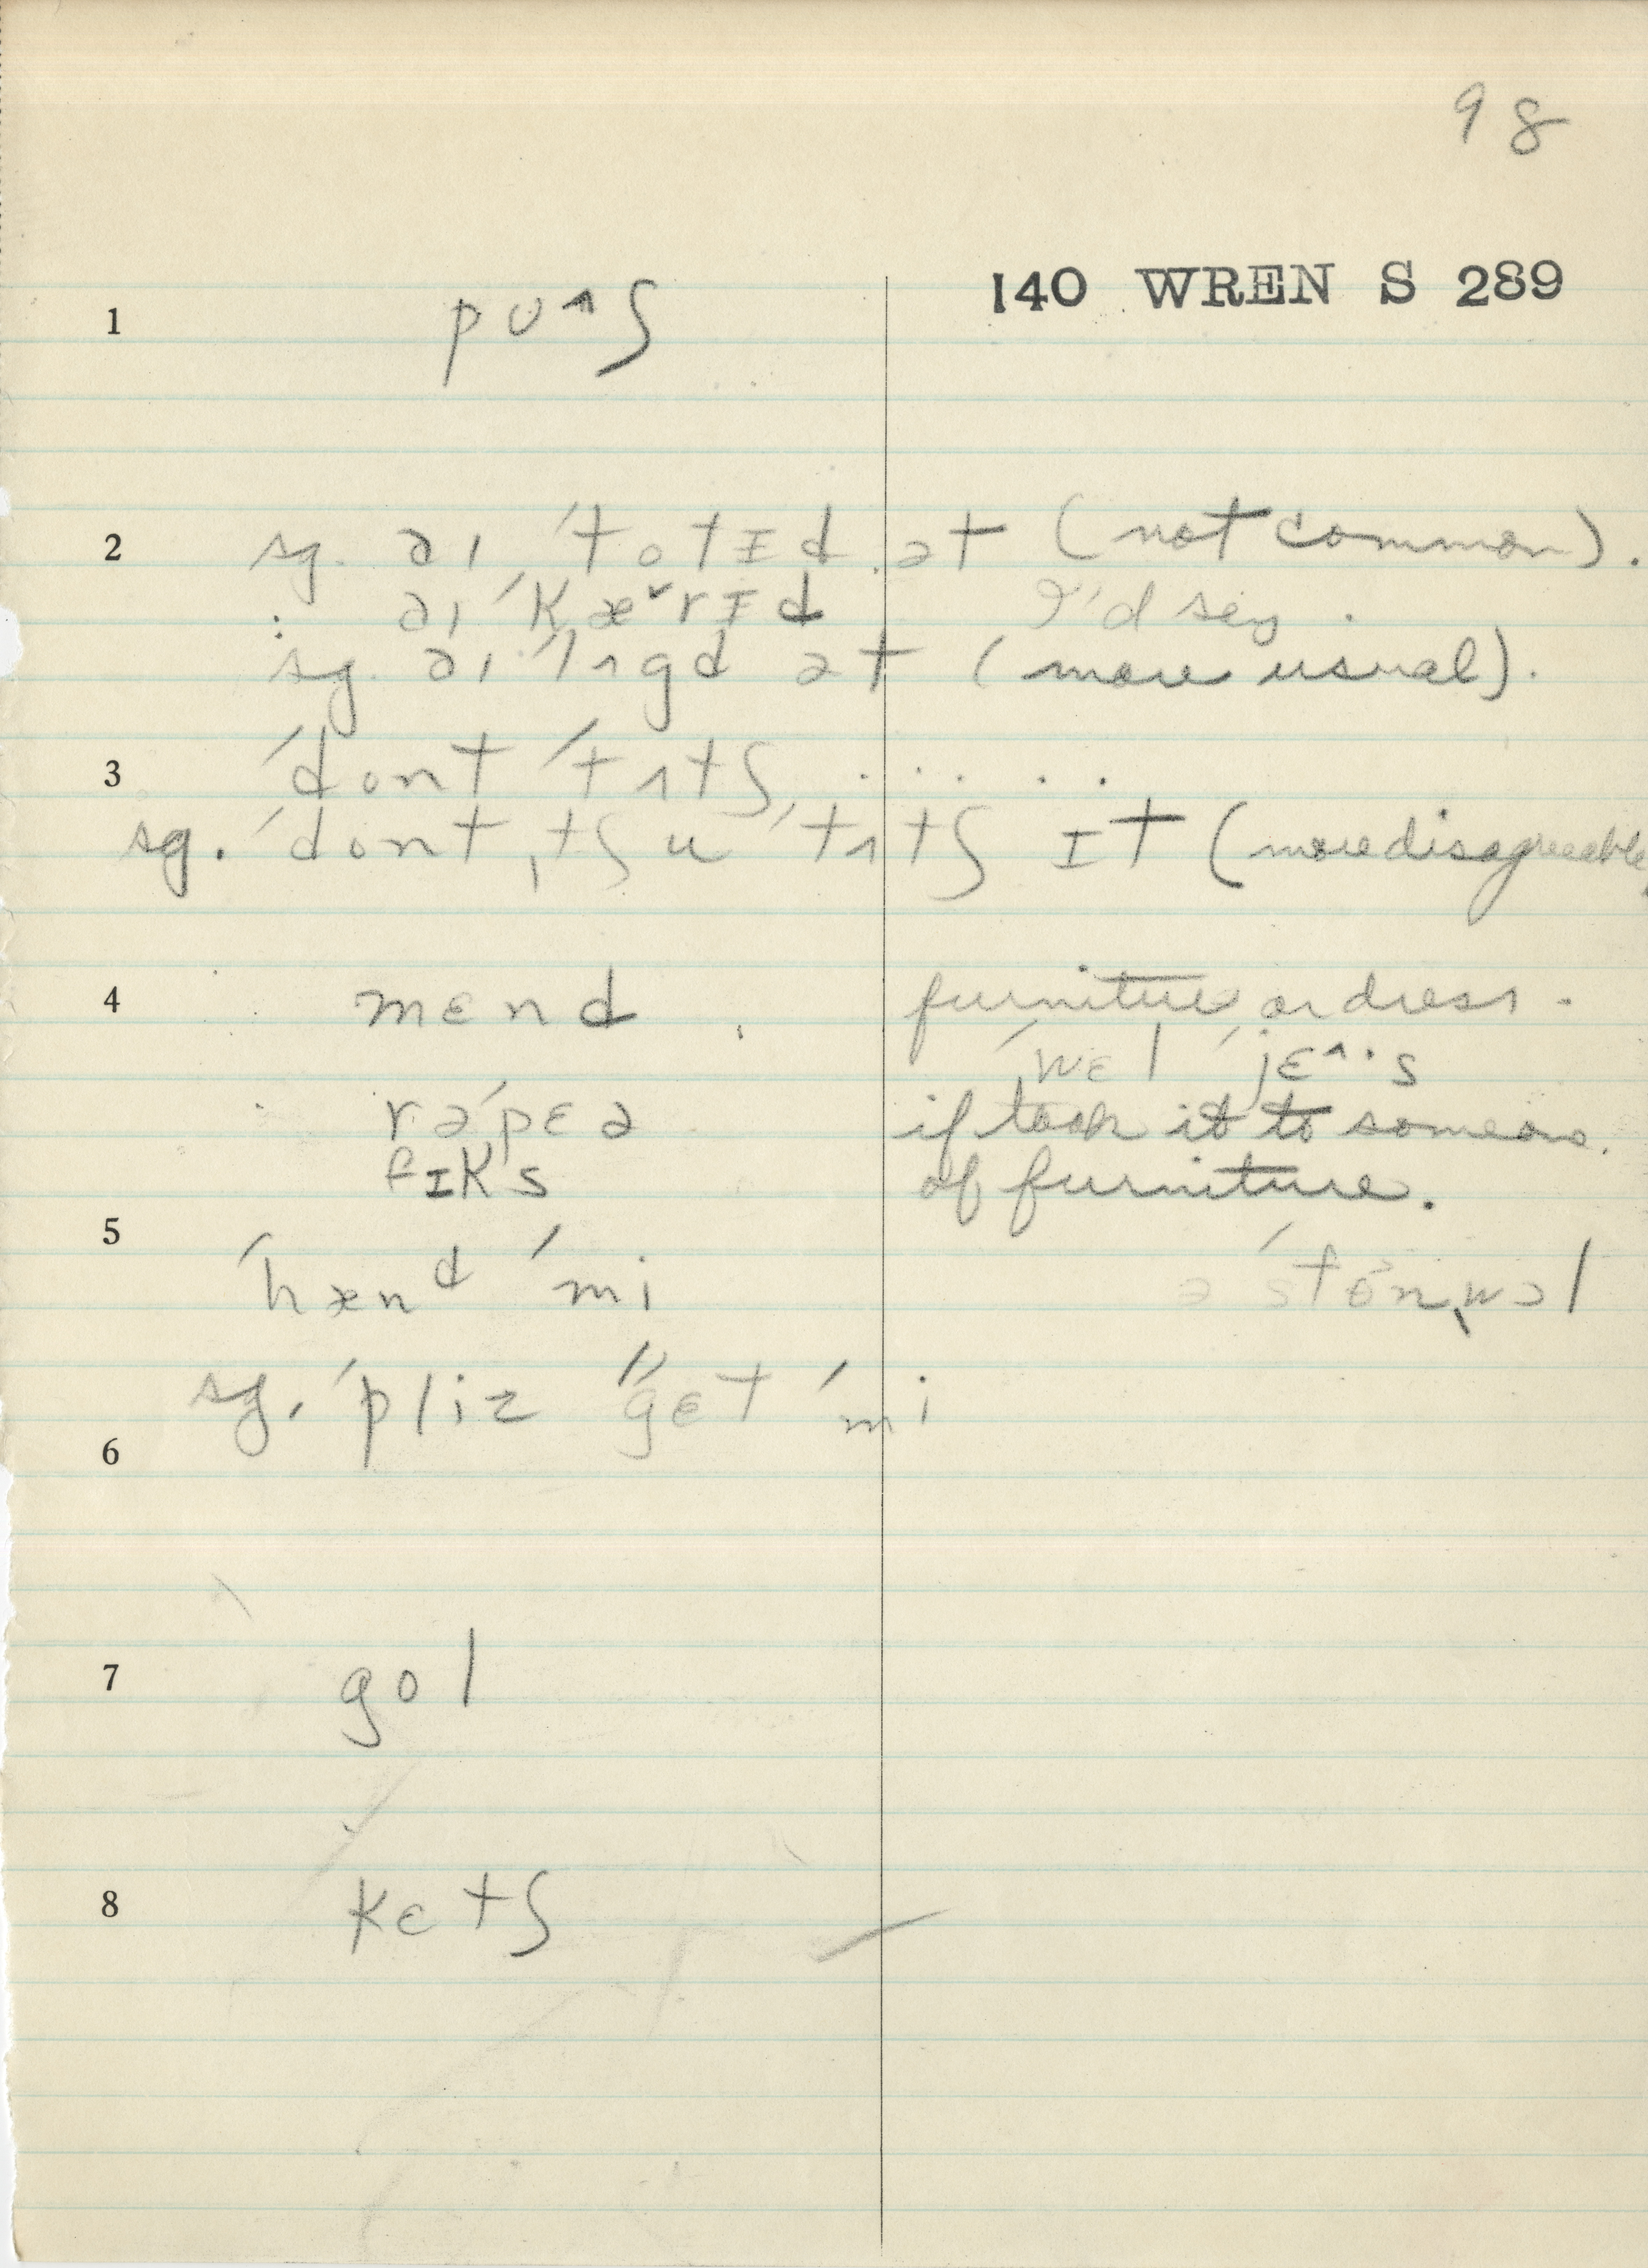 98
140 WREN S 289
1 pʊ^ʃ
2 sg. aɪ 'totɪd ət (not common).
: aɪ 'kæ˅rɪd I'd say.
sg. aɪ 'lʌgd ət (more usual).
3 'dont 'tʌtʃ . . . . .
sg. 'dont ˌtʃu 'tʌtʃ ɪt (more disagreeable)
4 mɛnd furniture or dress.
'wɛl 'jɛ^·s
rə'pɛə if took it to someone.
fɪks of furniture.
5
'hænᵈ 'mi ə 'stonˌwɔl
sg. 'pliz "gɛt 'mi
6
7 gol
8 kɛtʃ